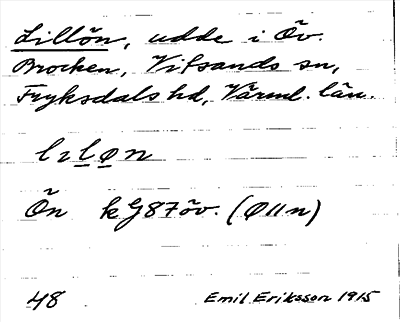 Lillön, udde i Öv.
Brocken, Vitsands sn,
Fryksdals hd, Värml. län.
lıløn
Ön k G87öv. (Ø11n)
48 Emil Eriksson 1915